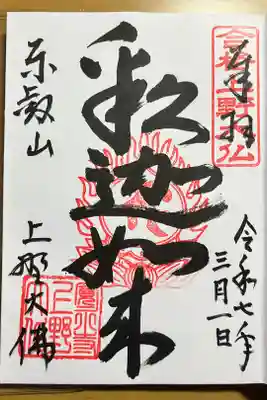 奉拝
合格上野大仏
令和七年
三月一日
釈迦如来
東叡山
上野大佛